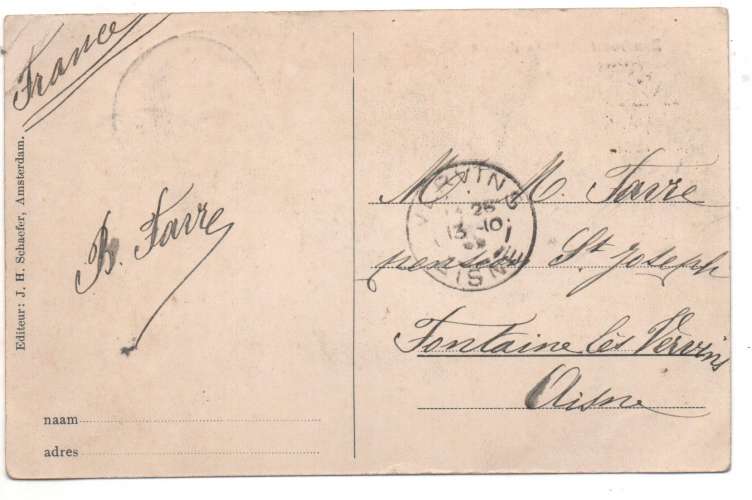 France
Editeur: J. H. Schaefer, Amsterdam.
B. Favre
naam
adres
M. M. Favre
pension St Joseph
Fontaine lès Vervins
Aisne
VERVINS
25
13-10
AISNE